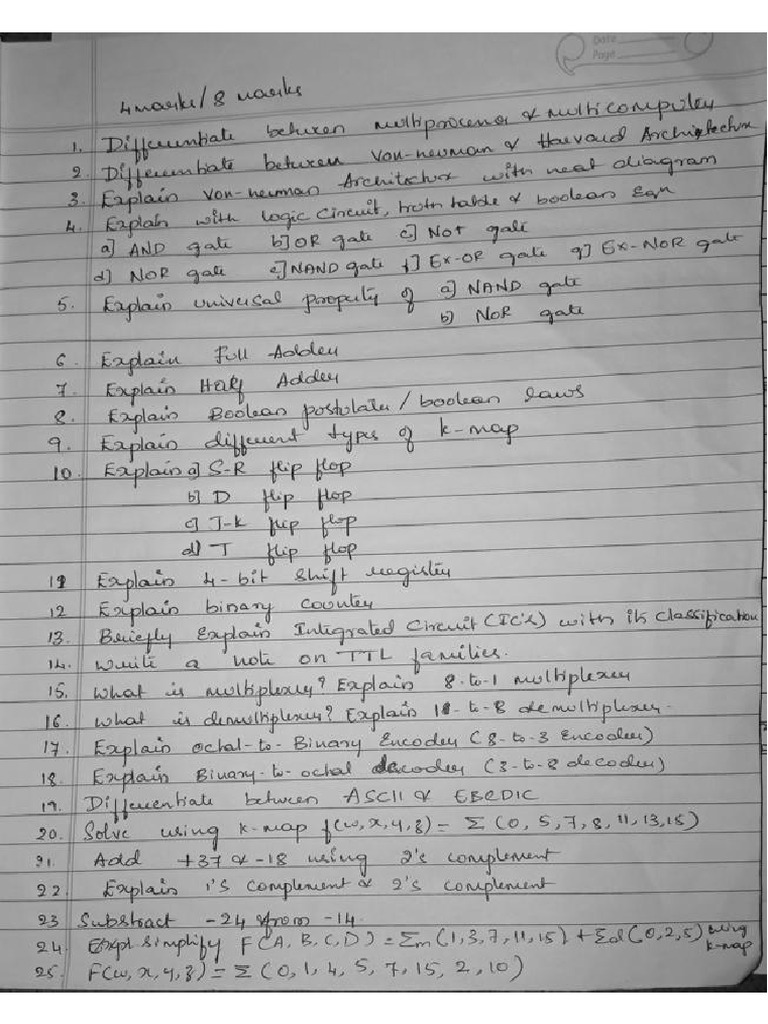 Date
Page
4 marks/8 marks
1. Differentiate between multiprocessor & multicomputer
2. Differentiate between Von-neuman & Harvard Architechture
3. Explain Von-neuman Architecture with neat diagram
4. Explain with logic circuit, truth table & boolean Eqn
a] AND gate b] OR gate c] Not gate
d] NOR gate e] NAND gate f] Ex-OR gate g] Ex-NOR gate
5. Explain universal property of a] NAND gate
b] NOR gate
6. Explain Full Adder
7. Explain Half Adder
8. Explain Boolean postulates/boolean laws
9. Explain different types of k-map
10. Explain a] S-R flip flop
b] D flip flop
c] J-k flip flop
d] T flip flop
11 Explain 4-bit shift register
12 Explain binary counter
13. Briefly Explain Integrated Circuit (IC's) with its classification
14. Write a note on TTL families.
15. What is multiplexer? Explain 8-to-1 multiplexer
16. What is demultiplexer? Explain 1-to-8 demultiplexer.
17. Explain octal-to-Binary Encoder (8-to-3 Encoder)
18. Explain Binary-to-octal decoder (3-to-8 decoder)
19. Differentiate between ASCII & EBCDIC
20. Solve using k-map f(w,x,y,z) = Σ (0, 5, 7, 8, 11, 13, 15)
21. Add +37 & -18 using 2's complement
22. Explain 1's complement & 2's complement
23 Substract -24 from -14.
24. simplify F(A, B, C, D) = Σm (1, 3, 7, 11, 15) + Σd (0, 2, 5) using k-map
25. F(w, x, y, z) = Σ (0, 1, 4, 5, 7, 15, 2, 10)